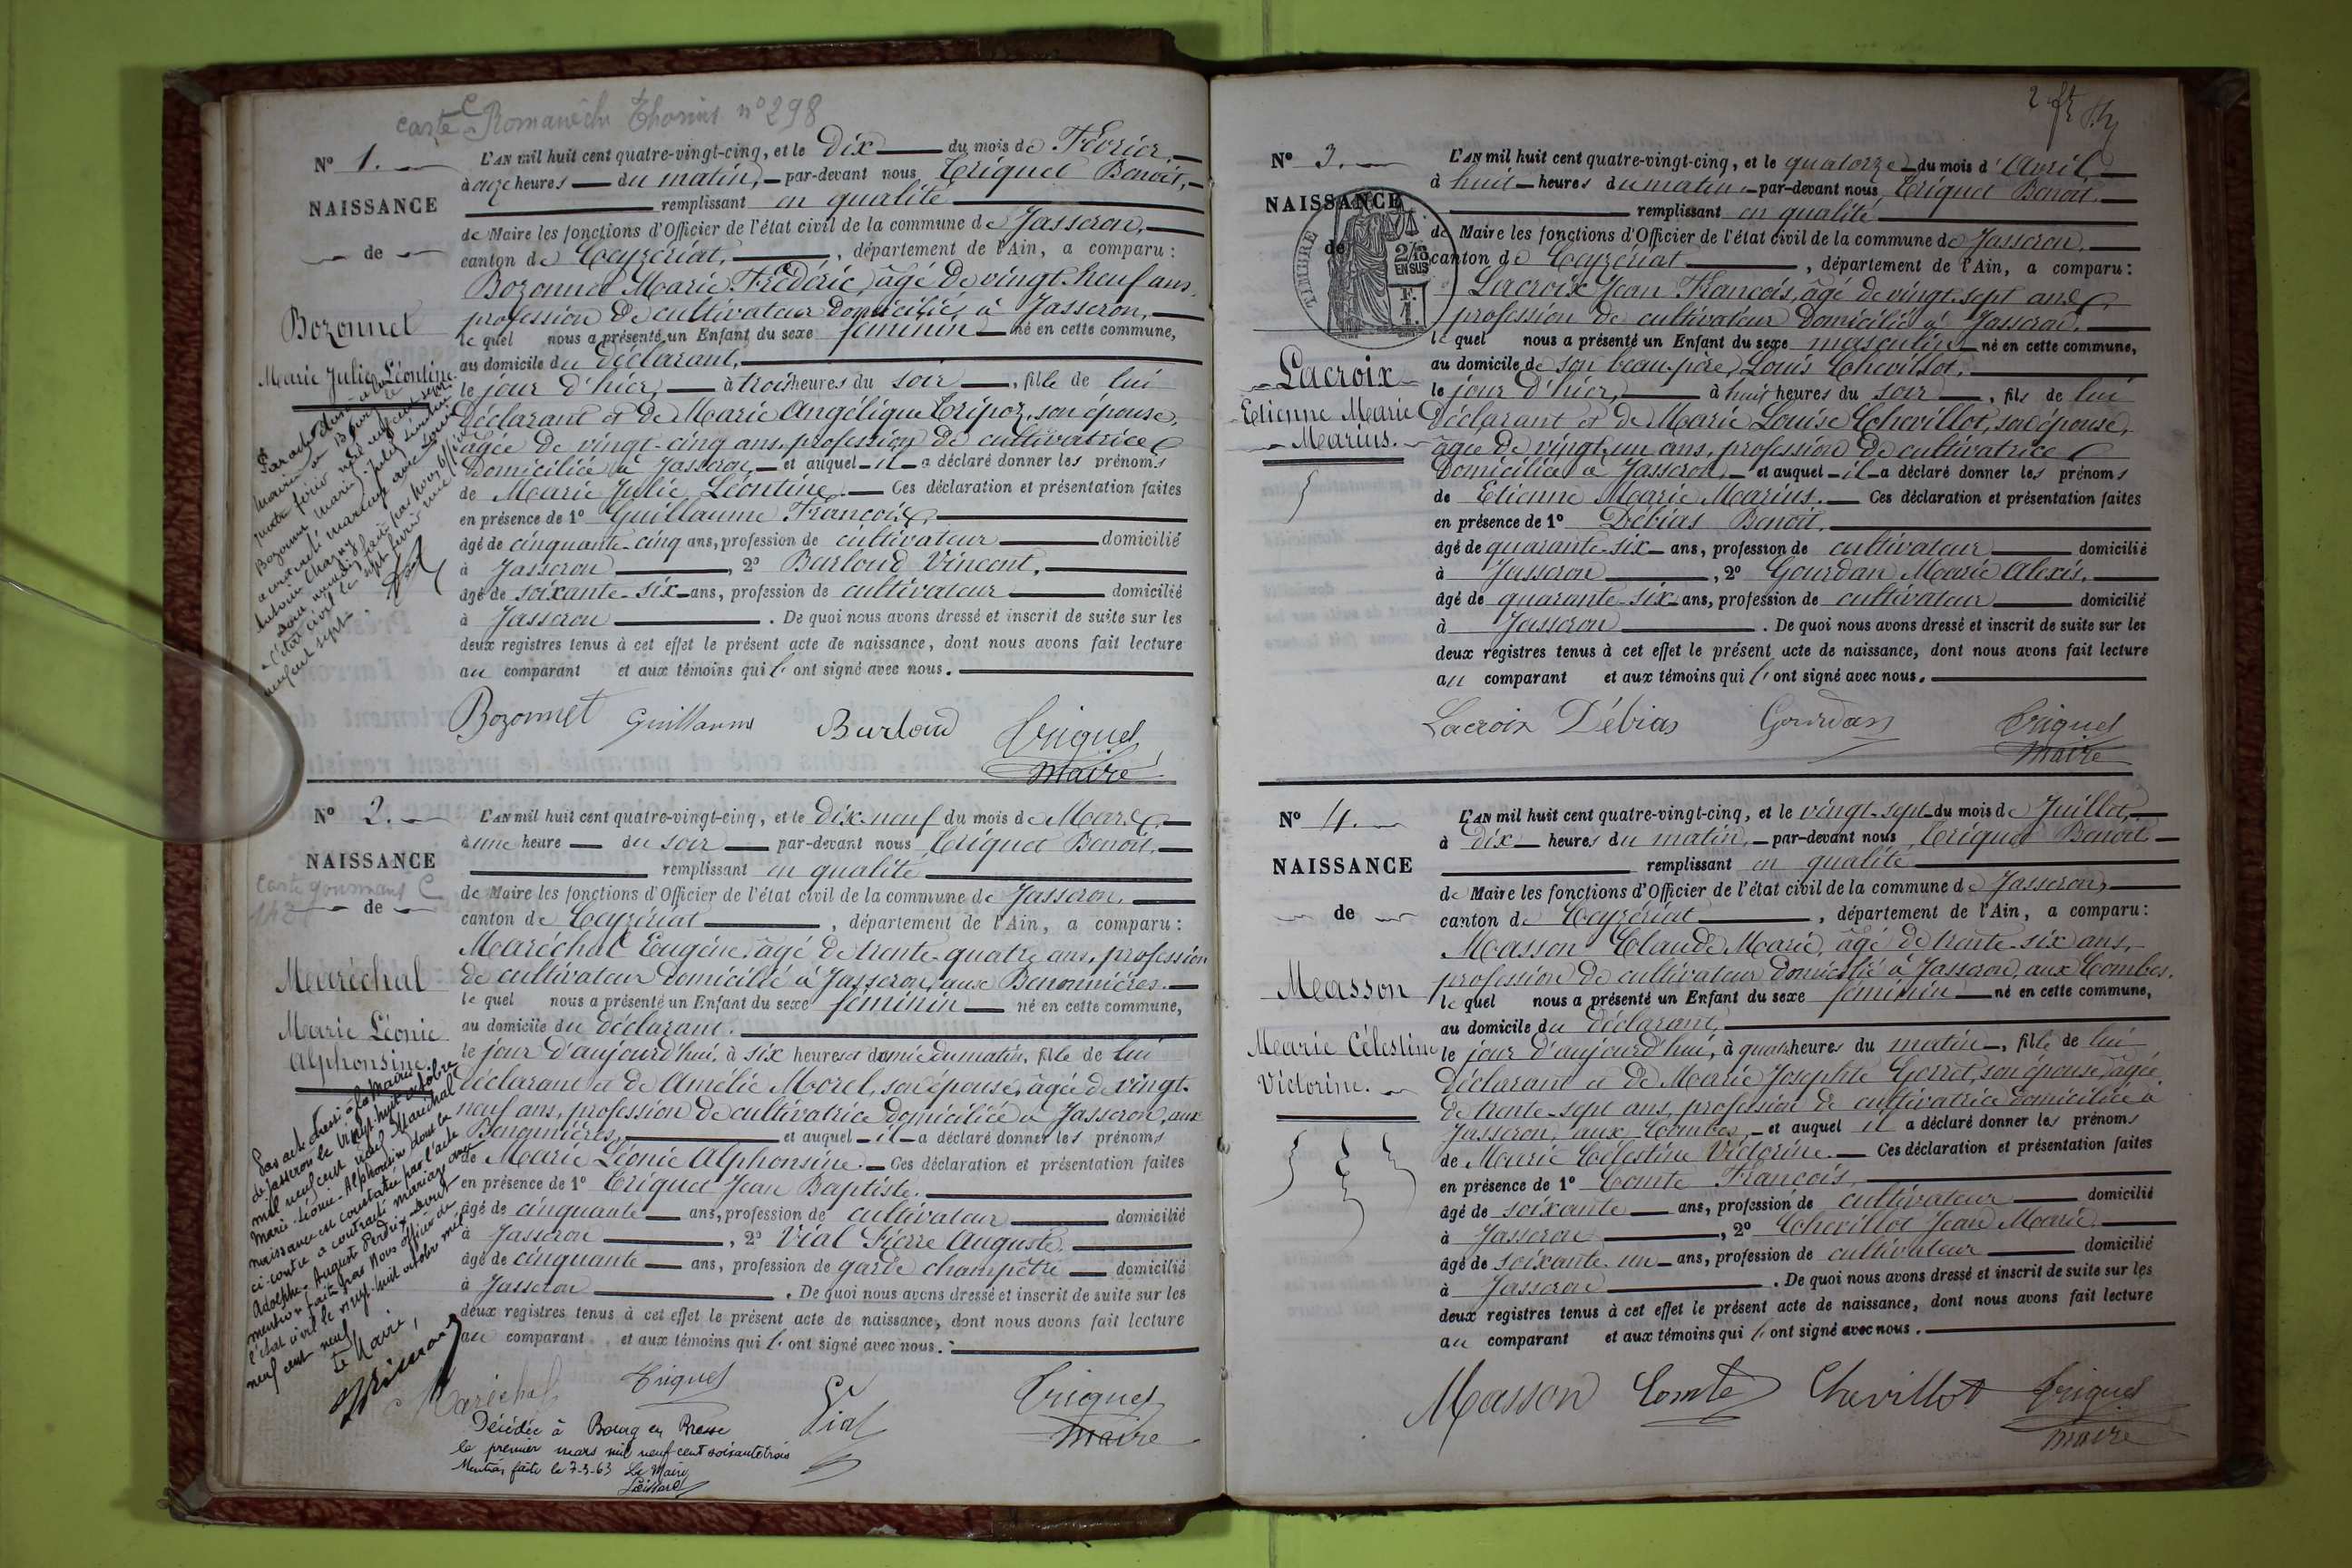 carte C Romanèche Thorins n° 298
N° 1.
NAISSANCE
de
Bozonnet
Marie Julie Léontine.
L'AN mil huit cent quatre-vingt-cinq, et le Dix du mois de Février,
à onze heures du matin, par-devant nous Criquet Benoit,
remplissant en qualité
de Maire les fonctions d'Officier de l'état civil de la commune de Jasseron,
canton de Ceyzériat, département de l'Ain, a comparu :
Bozonnet Marie Frédéric, âgé de vingt-neuf ans,
profession de cultivateur domicilié à Jasseron,
le quel nous a présenté un Enfant du sexe féminin né en cette commune,
au domicile du déclarant,
le jour d'hier, à trois heures du soir, fille de lui
déclarant et de Marie Angélique Tripoz, son épouse,
âgée de vingt-cinq ans, profession de cultivatrice
domiciliée à Jasseron, et auquel il a déclaré donner les prénoms
de Marie Julie Léontine. Ces déclaration et présentation faites
en présence de 1° Guillaume François,
âgé de cinquante-cinq ans, profession de cultivateur domicilié
à Jasseron, 2° Burloud Vincent,
âgé de soixante-six ans, profession de cultivateur domicilié
à Jasseron. De quoi nous avons dressé et inscrit de suite sur les
deux registres tenus à cet effet le présent acte de naissance, dont nous avons fait lecture
au comparant et aux témoins qui l'ont signé avec nous.
Bozonnet Guillaume Burloud Criquet
Maire
N° 2.
NAISSANCE
de
Maréchal
Marie Léonie
Alphonsine.
L'AN mil huit cent quatre-vingt-cinq, et le Dix-neuf du mois de Mars,
à une heure du soir par-devant nous Criquet Benoit,
remplissant en qualité
de Maire les fonctions d'Officier de l'état civil de la commune de Jasseron,
canton de Ceyzériat, département de l'Ain, a comparu :
Maréchal Eugène, âgé de trente-quatre ans, profession
de cultivateur domicilié à Jasseron, aux Benonnières.
le quel nous a présenté un Enfant du sexe féminin né en cette commune,
au domicile du déclarant.
le jour d'aujourd'hui, à six heures et demie du matin, fille de lui
déclarant et de Amélie Morel, son épouse, âgée de vingt-
neuf ans, profession de cultivatrice domiciliée à Jasseron, aux
Benonnières, et auquel il a déclaré donner les prénoms
de Marie Léonie Alphonsine. Ces déclaration et présentation faites
en présence de 1° Criquet Jean Baptiste.
âgé de cinquante ans, profession de cultivateur domicilié
à Jasseron, 2° Vial Pierre Auguste.
âgé de cinquante ans, profession de garde champêtre domicilié
à Jasseron. De quoi nous avons dressé et inscrit de suite sur les
deux registres tenus à cet effet le présent acte de naissance, dont nous avons fait lecture
au comparant et aux témoins qui l'ont signé avec nous.
Par acte dressé à la Mairie
de Jasseron le vingt-huit octobre
mil neuf cent neuf Maréchal
Marie-Léonie-Alphonsine dont la
naissance est constatée par l'acte
ci-contre a contracté mariage avec
Adolphe Auguste Perdrix dont
mention faite par Nous officier de
l'état civil le vingt-huit octobre mil
neuf cent neuf
Le Maire,
Maréchal Criquet Vial Criquet
Maire
Décédée à Bourg en Bresse
le premier mars mil neuf cent soixante trois
Mention faite le 7-3-63 Le Maire
N° 3.
NAISSANCE
de
TIMBRE
2/10 EN SUS
Lacroix
Etienne Marie
Marius.
L'AN mil huit cent quatre-vingt-cinq, et le quatorze du mois d'Avril,
à huit heures du matin, par-devant nous, Criquet Benoit,
remplissant en qualité
de Maire les fonctions d'Officier de l'état civil de la commune de Jasseron,
canton de Ceyzériat, département de l'Ain, a comparu :
Lacroix Jean François, âgé de vingt-sept ans,
profession de cultivateur domicilié à Jasseron.
le quel nous a présenté un Enfant du sexe masculin né en cette commune,
au domicile de son beau-père, Louis Chevillot,
le jour d'hier, à huit heures du soir, fils de lui
déclarant et de Marie Louise Chevillot, son épouse,
âgée de vingt-un ans, profession de cultivatrice
domiciliée à Jasseron, et auquel il a déclaré donner les prénoms
de Etienne Marie Marius. Ces déclaration et présentation faites
en présence de 1° Débias Benoit,
âgé de quarante-six ans, profession de cultivateur domicilié
à Jasseron, 2° Gourdan Marie Alexis,
âgé de quarante-six ans, profession de cultivateur domicilié
à Jasseron. De quoi nous avons dressé et inscrit de suite sur les
deux registres tenus à cet effet le présent acte de naissance, dont nous avons fait lecture
au comparant et aux témoins qui l'ont signé avec nous.
Lacroix Débias Gourdan Criquet
Maire
N° 4.
NAISSANCE
de
Masson
Marie Célestine
Victorine.
L'AN mil huit cent quatre-vingt-cinq, et le vingt-sept du mois de Juillet,
à dix heures du matin, par-devant nous, Criquet Benoit
remplissant en qualité
de Maire les fonctions d'Officier de l'état civil de la commune de Jasseron,
canton de Ceyzériat, département de l'Ain, a comparu :
Masson Claude Marie, âgé de trente-six ans,
profession de cultivateur domicilié à Jasseron, aux Combes,
le quel nous a présenté un Enfant du sexe féminin né en cette commune,
au domicile du déclarant,
le jour d'aujourd'hui, à quatre heures du matin, fille de lui
déclarant et de Marie Josephte Gerret, son épouse, âgée
de trente-sept ans, profession de cultivatrice domiciliée à
Jasseron, aux Combes, et auquel il a déclaré donner les prénoms
de Marie Célestine Victorine. Ces déclaration et présentation faites
en présence de 1° Comte François,
âgé de soixante ans, profession de cultivateur domicilié
à Jasseron, 2° Chevillot Jean Marie,
âgé de soixante-un ans, profession de cultivateur domicilié
à Jasseron. De quoi nous avons dressé et inscrit de suite sur les
deux registres tenus à cet effet le présent acte de naissance, dont nous avons fait lecture
au comparant et aux témoins qui l'ont signé avec nous.
Masson Comte Chevillot Criquet
Maire